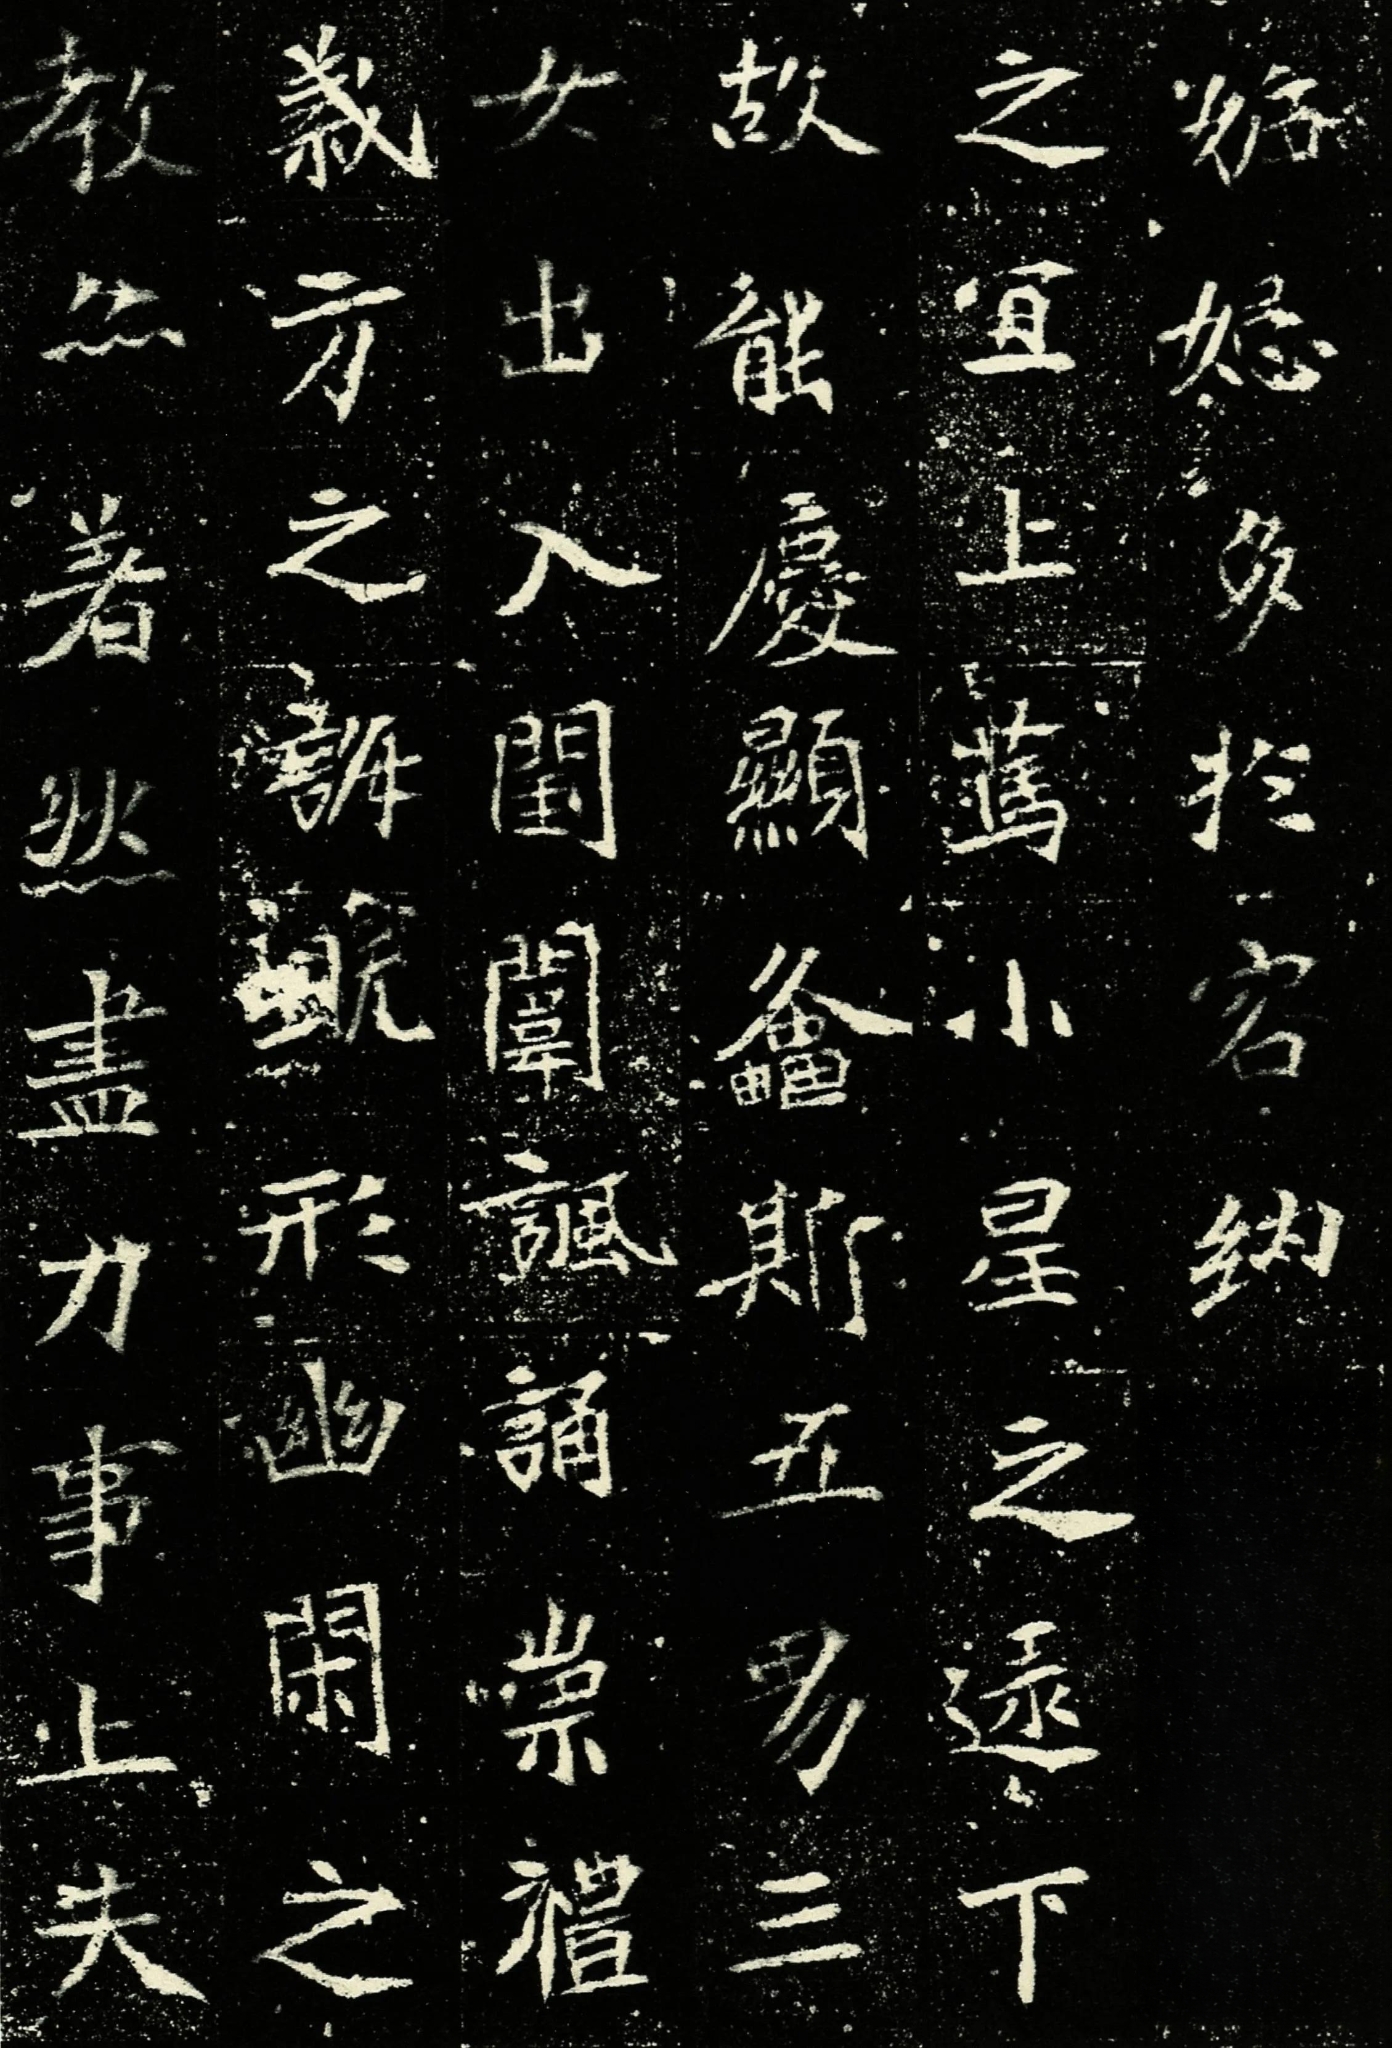 恕多於容納
之宜上篤小星之逮下
故能慶顯螽斯五男三
女出入閨闈諷誦崇禮
義方之形幽閑之
教亦著然盡力事上夫